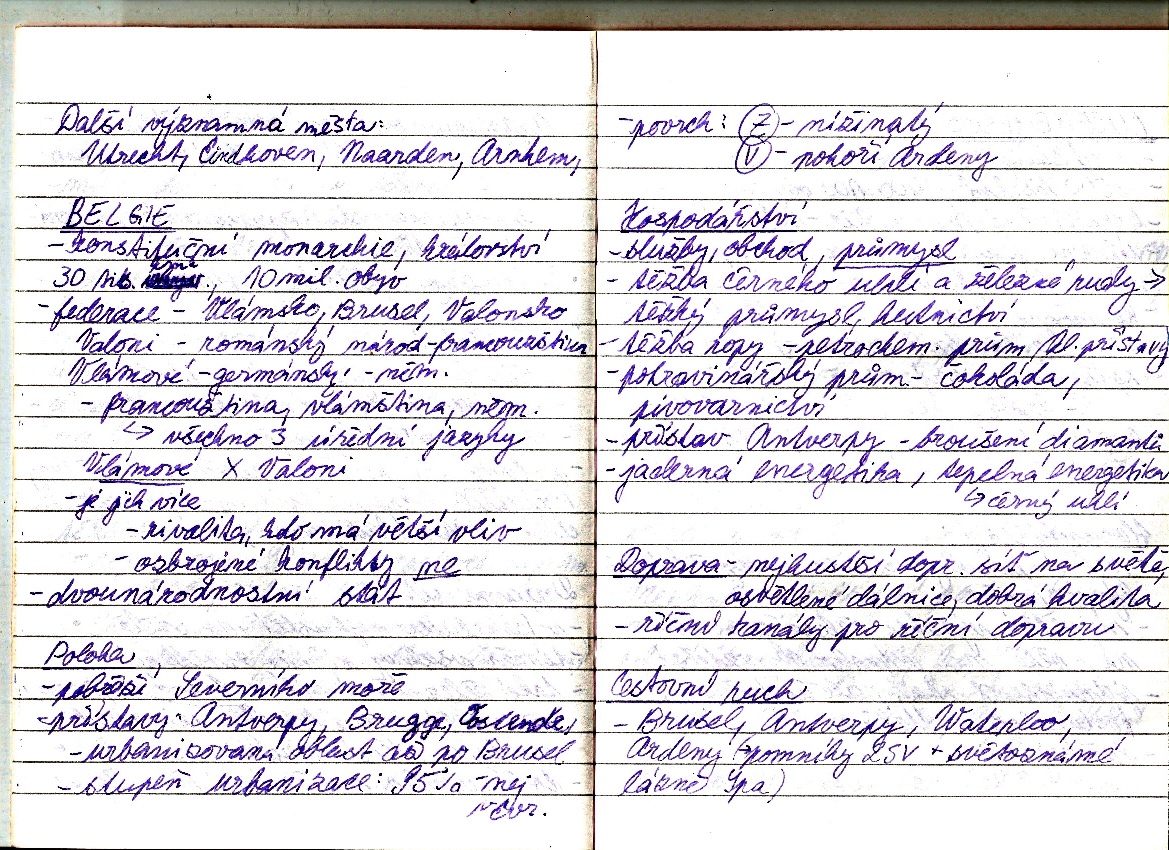 Další významná města:
Utrecht, Eindhoven, Naarden, Arnhem,
BELGIE
- konstituční monarchie, království
30 tis. km², 10 mil. obyv
- federace - Vlámsko, Brusel, Valonsko
Valoni - románský národ - francouzština
Vlámové - germánský, - něm.
- francouzština, vlámština, něm.
↳ všechno 3 úřední jazyky
Vlámové X Valoni
- je jich více
- rivalita, kdo má větší vliv
- ozbrojené konflikty ne
- dvounárodnostní stát
Poloha
- pobřeží Severního moře
- přístavy: Antverpy, Brugge, Oostende,
- urbanizovaná oblast až po Brusel
- stupeň urbanizace: 95% - nej
v Evr.
- povrch: Z - nížinatý
V - pohoří Ardeny
Hospodářství
- služby, obchod, průmysl
- těžba černého uhlí a železné rudy →
těžký průmysl, hutnictví
- těžba ropy - petrochem. prům. přístavy
- potravinářský prům. - čokoláda,
pivovarnictví
- přístav Antverpy - broušení diamantů
- jaderná energetika, tepelná energetika
↳ černý uhlí
Doprava - nejhustší dopr. síť na světě,
osvětlené dálnice, dobrá kvalita
- říční kanály pro říční dopravu
Cestovní ruch
- Brusel, Antverpy, Waterloo,
Ardeny (→ pomníky 2SV + světoznámé
lázně Spa)